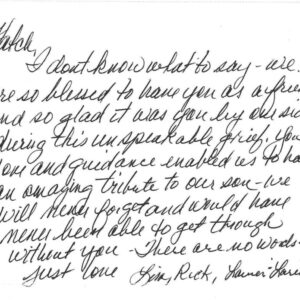 Hatch,
I don't know what to say - we
are so blessed to have you as a frien
and so glad it was you by our sid
during this unspeakable grief, you
love and guidance enabled us to ha
an amazing tribute to our son - we
will never forget and would have
never been able to get through
without you - There are no words -
Just love Lisa, Rick,